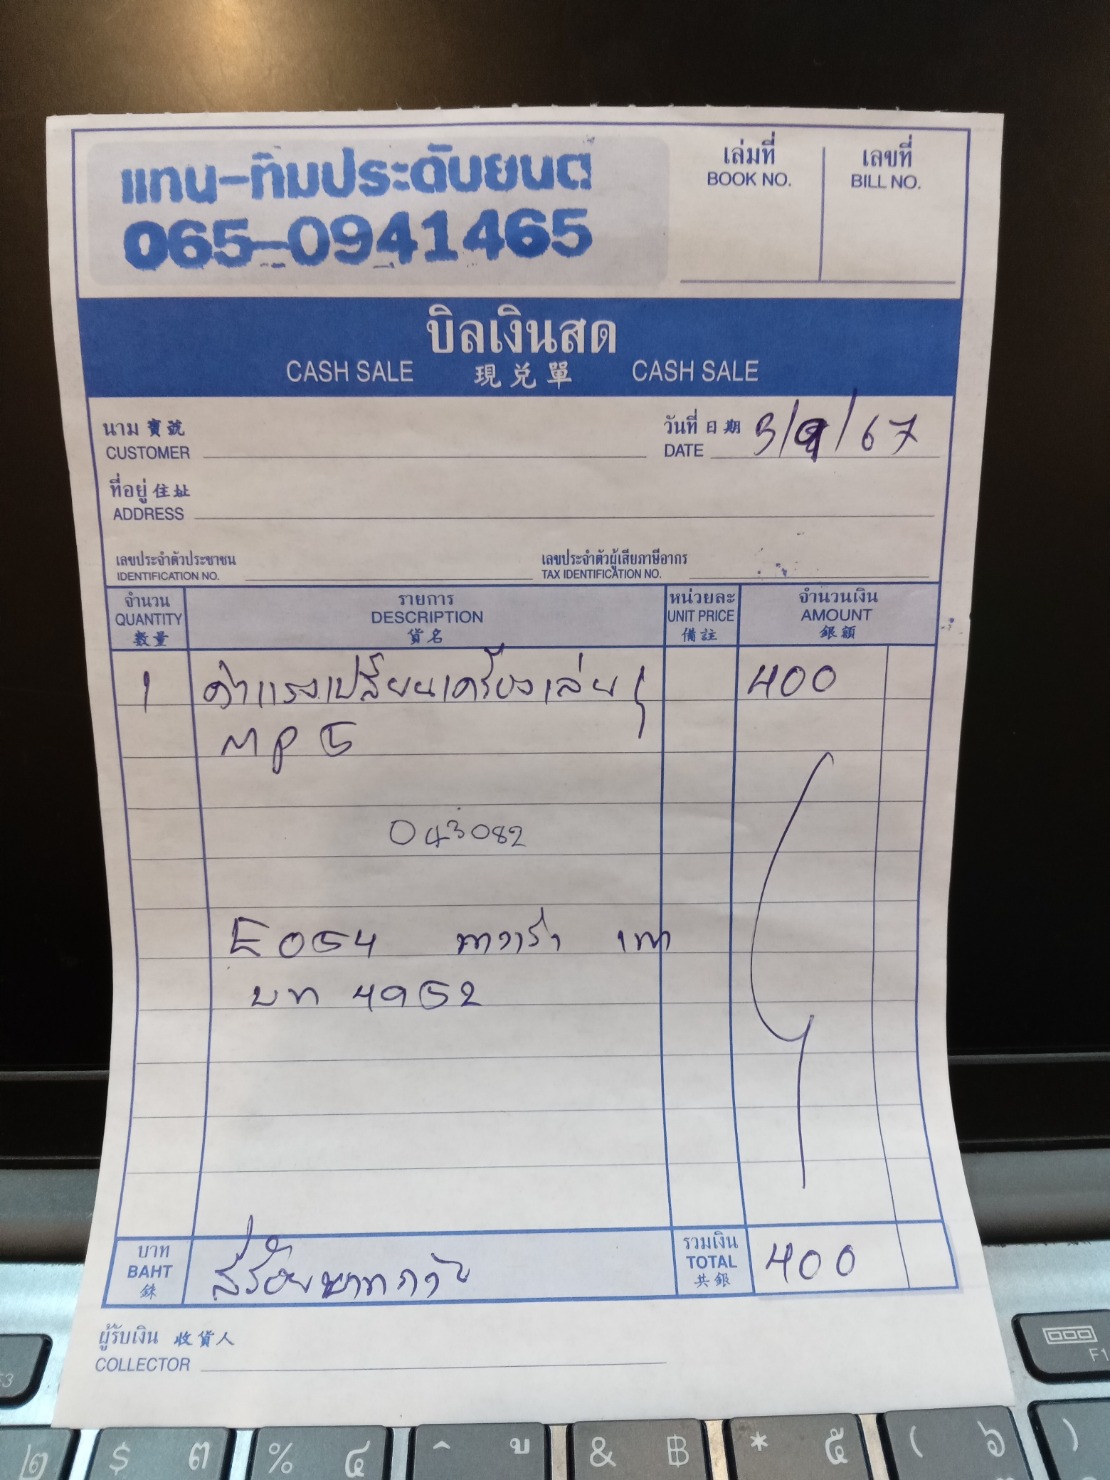 แทน-ทิมประดับยนต์
065-0941465
เล่มที่
BOOK NO.
เลขที่
BILL NO.
บิลเงินสด
CASH SALE 現兌單 CASH SALE
นาม 寶號
CUSTOMER
วันที่ 日期
DATE 3/9/67
ที่อยู่ 住址
ADDRESS
เลขประจำตัวประชาชน
IDENTIFICATION NO.
เลขประจำตัวผู้เสียภาษีอากร
TAX IDENTIFICATION NO.
จำนวน
QUANTITY
數量
รายการ
DESCRIPTION
貨名
หน่วยละ
UNIT PRICE
備註
จำนวนเงิน
AMOUNT
銀額
1 ค่าแรงเปลี่ยนเครื่องเล่น 400
MP5
043082
E054
บท 4952
บาท
BAHT
銖
สี่ร้อยบาทถ้วน
รวมเงิน
TOTAL
共銀
400
ผู้รับเงิน 收貨人
COLLECTOR
F3
F1
๒
$ ๓
% ๔
^ ข
& ฿
* ๕
( ๖
)